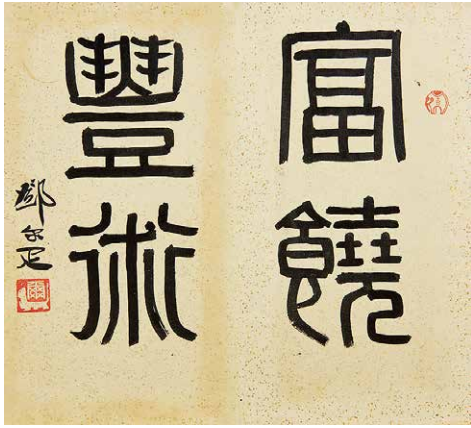 富饒
豐術
鄧尔疋